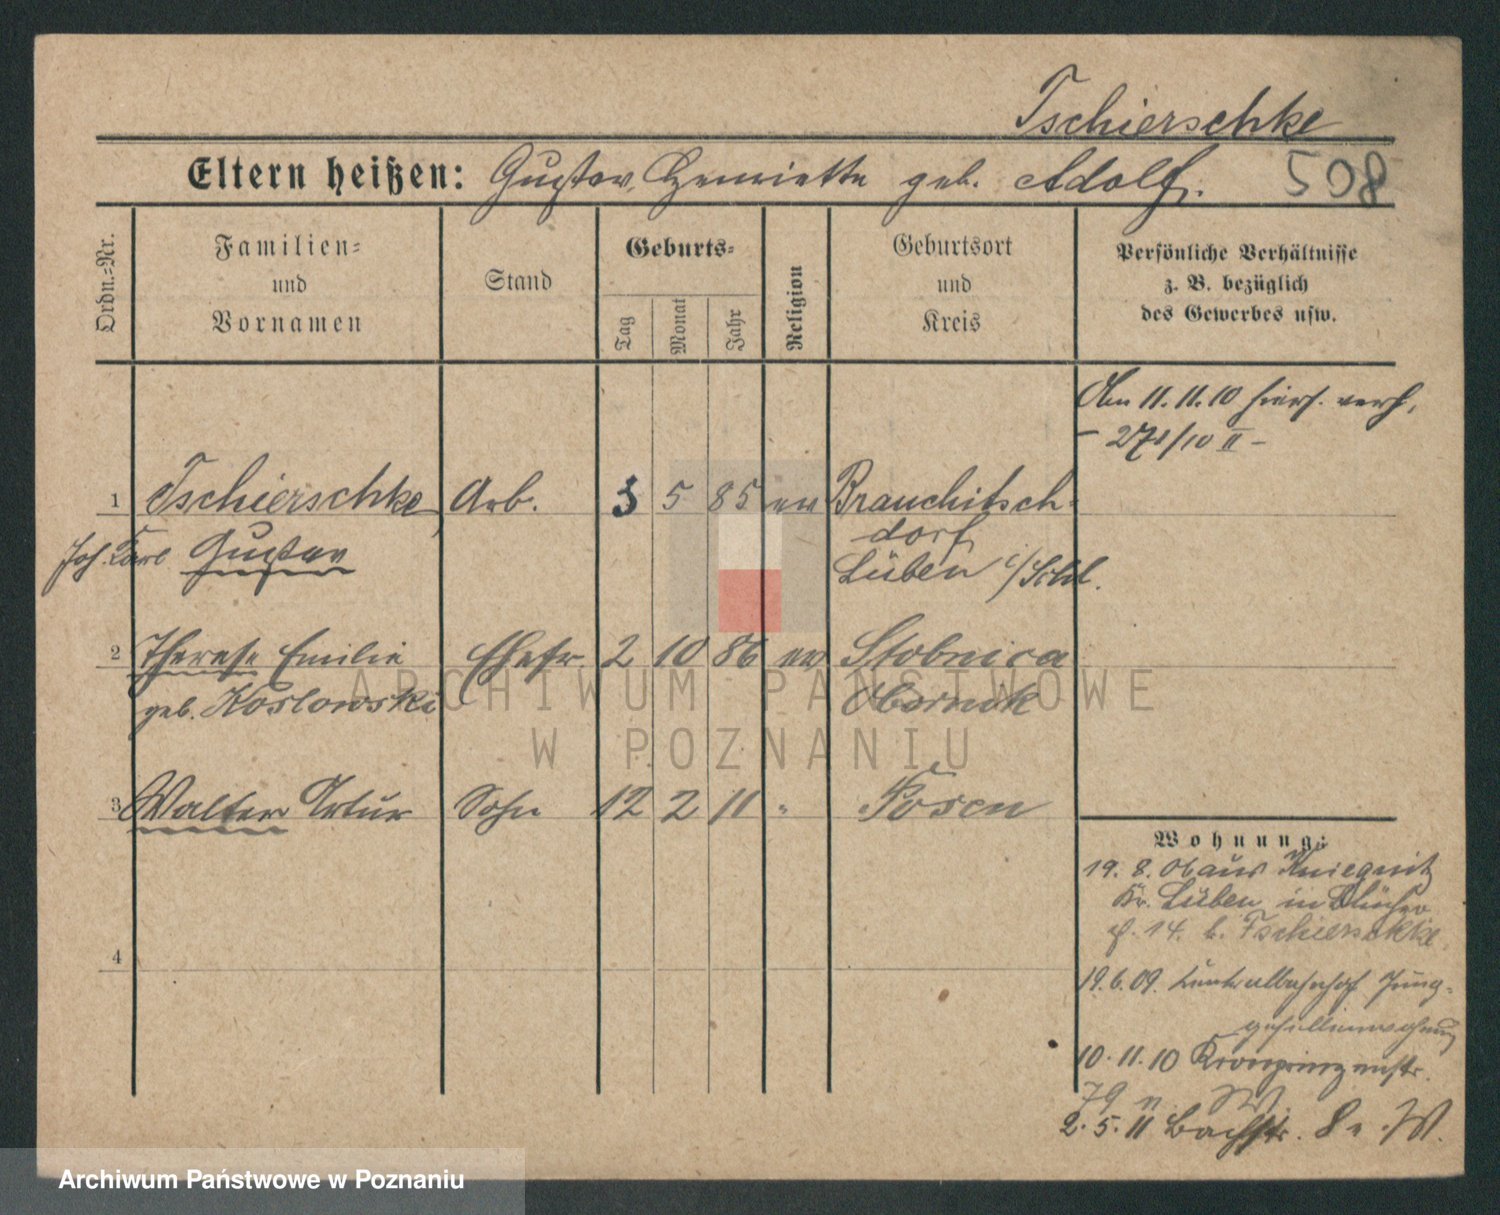 Tschierschke
Eltern heißen: Gustav, Henriette geb. Adolf.
508
Ordn.-Nr.
Familien-
und
Vornamen
Stand
Geburts-
Tag
Monat
Jahr
Religion
Geburtsort
und
Kreis
Persönliche Verhältnisse
z. B. bezüglich
des Gewerbes usw.
Am 11. 11. 10 hiers. verh.
- 278/10 II -
1 Tschierschke, Arb. 3 5 85 ev Brauchitsch-
dorf
Joh. Karl Gustav
Lüben i/Schl.
2 Therese Emilie Ehefr. 2 10 86 ev Stobnica
geb. Koslowski Obornik
3 Walter Artur Sohn 12 2 11 " Posen
4
Wohnung:
19. 8. 06 aus Kniegnitz
Kr. Lüben in Blücher
14. b. Tschierschke
19. 6. 09. Zentralbahnhof Jung-
gesellenwohnung
10. 11. 10 Kronprinzenstr.
79 II. W.
2. 5. 11 Bachstr. 8 W.
ARCHIWUM PAŃSTWOWE
W POZNANIU
Archiwum Państwowe w Poznaniu